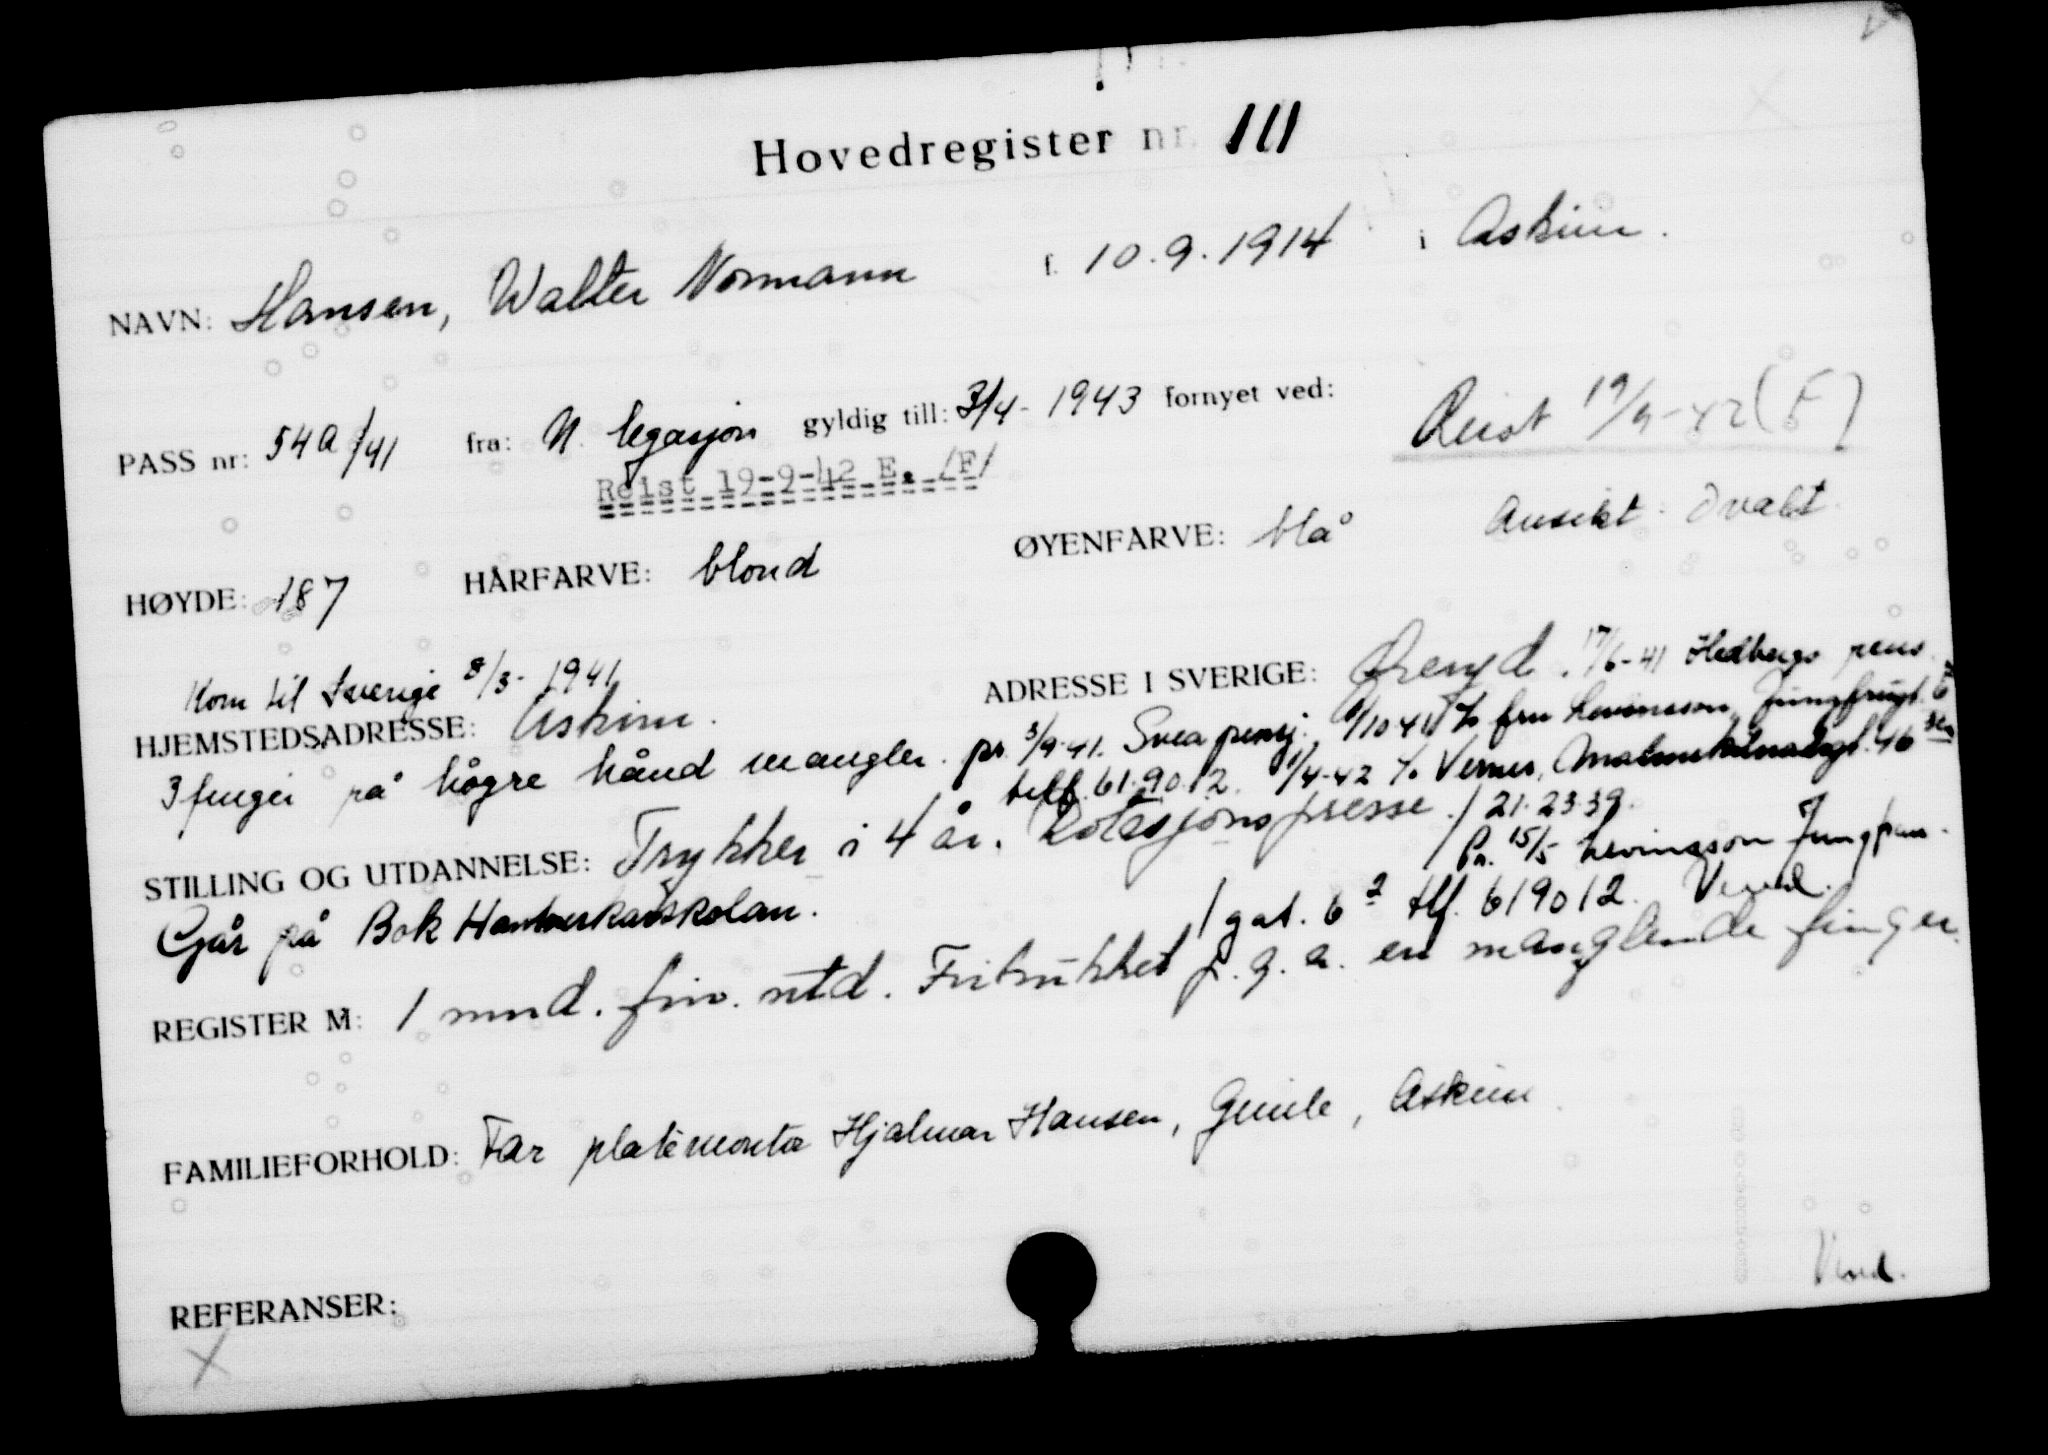 Hovedregister nr. 111
NAVN: Hansen, Walter Normann f. 10.9.1914 i Askim.
PASS nr: 54a/41 fra: N. legasjon gyldig till: 3/4- 1943 fornyet ved:
Reist 19/9-42 (F)
Reist 19-9-42 E. /F/
HØYDE: 187 HÅRFARVE: blond ØYENFARVE: blå Ansikt: Ovalt.
Kom til Sverige 8/3- 1941
HJEMSTEDSADRESSE: Askim. ADRESSE I SVERIGE: Øreryd. 17/6-41 Hedbergs pens.
pr. 3/9-41. Svea pensj. /10-41 % fru Levinsson, Jungfrugt. 6
3 finger på høgre hånd mangler. telf. 61.90.12. 1/4-42 % Verner, Malmskilnadsgt. 46
STILLING OG UTDANNELSE: Trykker i 4 år. Rotasjonspresse. / 21.23.39.
/ Pr. 15/5 Levinsson Jungfru-
Går på Bok Hantverkarskolan. / gat. 6 2 tlf. 619012. Vend.
REGISTER M: 1 mnd. friv. utd. Fritrukket p.g.a. en manglende finger.
FAMILIEFORHOLD: Far platemontør Hjalmar Hansen, Gimle, Askim
Vend.
REFERANSER:
X